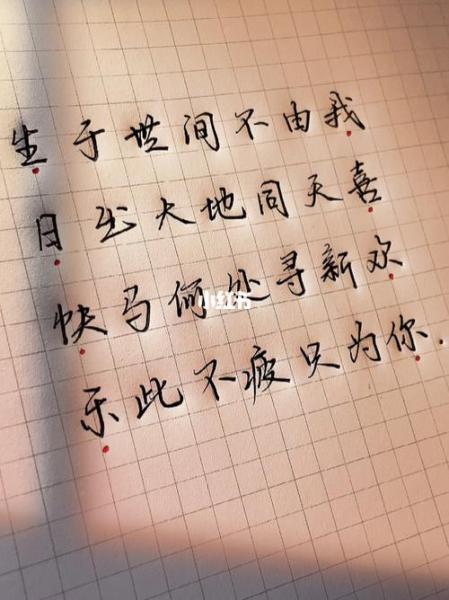 生于世间不由我
日出大地同天喜
快马何处寻新欢
乐此不疲只为你.
小红书